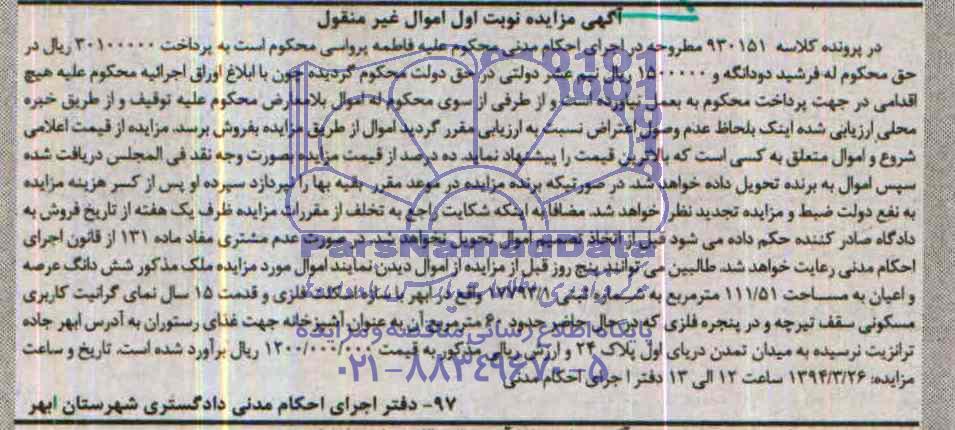 آگهی مزایده نوبت اول اموال غیر منقول
در پرونده کلاسه ۹۳۰۱۵۱ مطروحه در اجرای احکام مدنی محکوم علیه فاطمه پرواسی محکوم است به پرداخت ۳۰۱۰۰۰۰۰ ریال در
حق محکوم له فرشید دودانگه و ۱۵۰۰۰۰۰ ریال نیم عشر دولتی در حق دولت محکوم گردیده چون با ابلاغ اوراق اجرائیه محکوم علیه هیچ
اقدامی در جهت پرداخت محکوم به بعمل نیاورده است و از طرفی از سوی محکوم له اموال بلامعارض محکوم علیه توقیف و از طریق خبره
محلی ارزیابی شده اینک بلحاظ عدم وصول اعتراض نسبت به ارزیابی مقرر گردید اموال از طریق مزایده بفروش برسد. مزایده از قیمت اعلامی
شروع و اموال متعلق به کسی است که بالاترین قیمت را پیشنهاد نماید. ده درصد از قیمت مزایده بصورت وجه نقد فی المجلس دریافت شده
سپس اموال به برنده تحویل داده خواهد شد. در صورتیکه برنده مزایده در موعد مقرر بقیه بها را نپردازد سپرده او پس از کسر هزینه مزایده
به نفع دولت ضبط و مزایده تجدید نظر خواهد شد. مضافا به اینکه شکایت راجع به تخلف از مقررات مزایده ظرف یک هفته از تاریخ فروش به
دادگاه صادر کننده حکم داده می شود قبل از اتخاذ تصمیم اموال تحویل نخواهد شد. در صورت عدم مشتری مفاد ماده ۱۳۱ از قانون اجرای
احکام مدنی رعایت خواهد شد. طالبین می توانند پنج روز قبل از مزایده از اموال دیدن نمایند اموال مورد مزایده ملک مذکور شش دانگ عرصه
و اعیان به مساحت ۱۱۱/۵۱ مترمربع به شماره ثبتی ۱۷۷۹۳/۸ واقع در ابهر با سازه اسکلت فلزی و قدمت ۱۵ سال نمای گرانیت کاربری
مسکونی سقف تیرچه و در پنجره فلزی که در حال حاضر حدود ۶۰ متر مربع آن به عنوان آشپزخانه جهت غذای رستوران به آدرس ابهر جاده
ترانزیت نرسیده به میدان تمدن دریای اول پلاک ۲۴ و ارزش ریالی مذکور به قیمت ۱۲۰۰/۰۰۰/۰۰۰ ریال برآورد شده است. تاریخ و ساعت
مزایده: ۱۳۹۴/۳/۲۶ ساعت ۱۲ الی ۱۳ دفتر اجرای احکام مدنی
۹۷- دفتر اجرای احکام مدنی دادگستری شهرستان ابهر
ParsNamadData
پایگاه اطلاع رسانی مناقصه و مزایده
۰۲۱-۸۸۳۴۹۶۷۰-۵